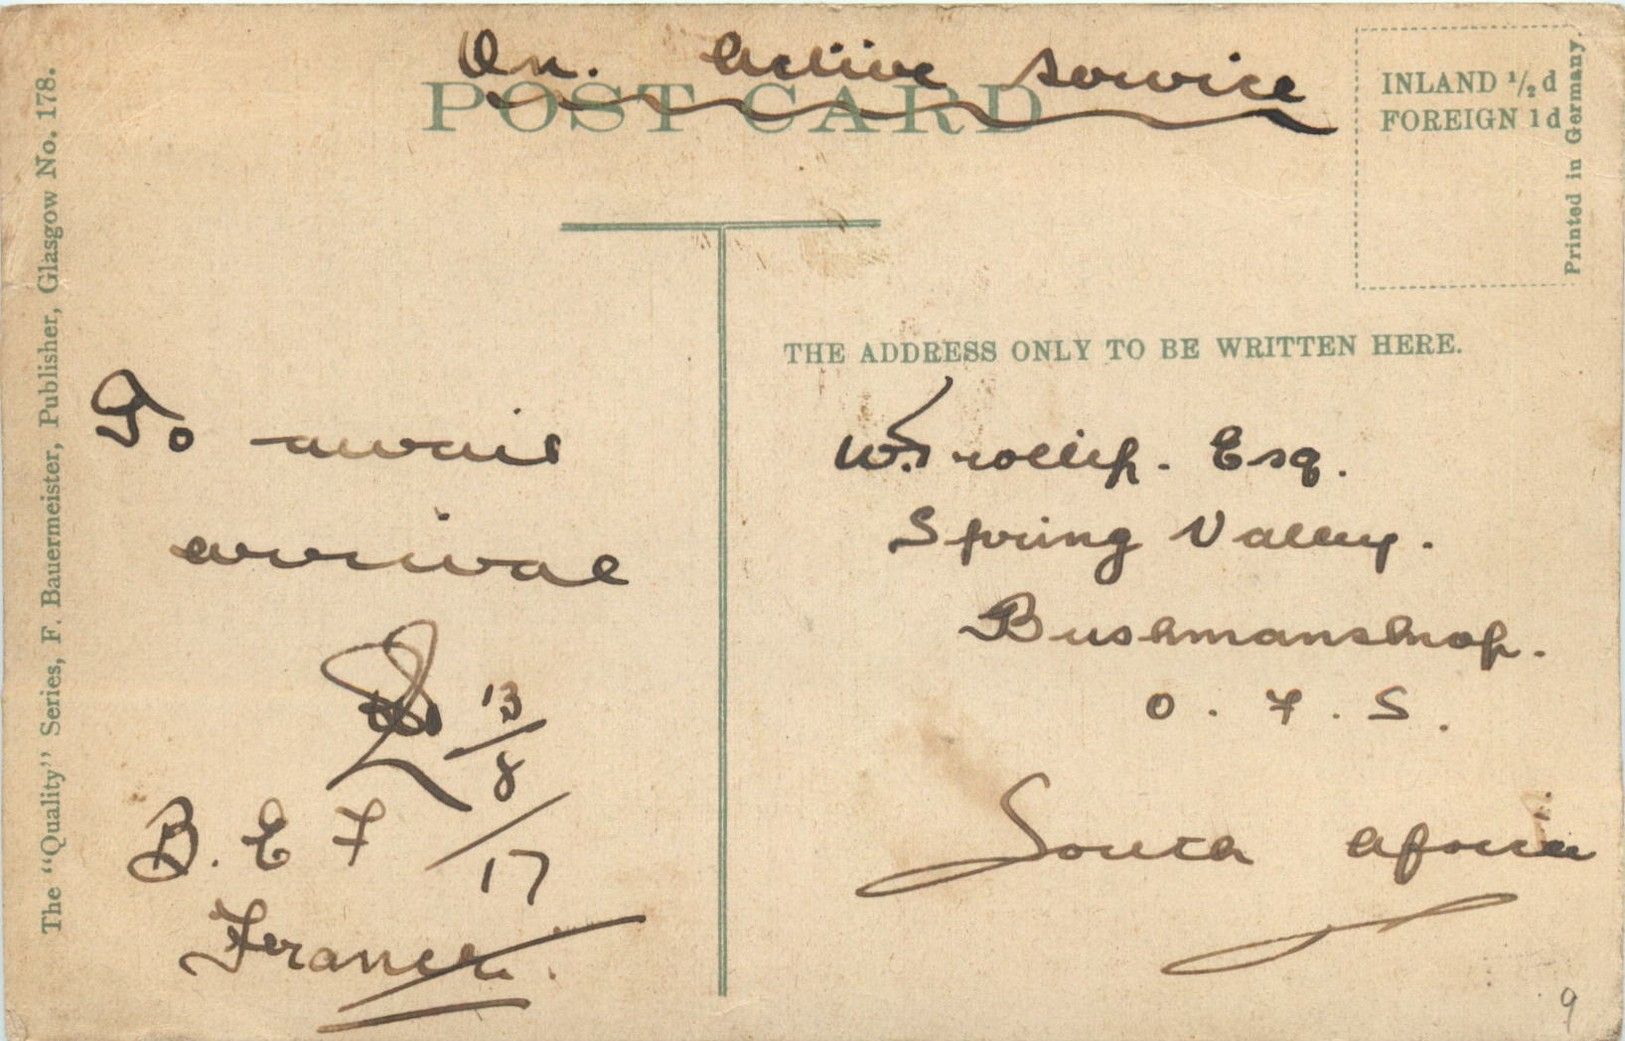 On. Active Service
POST CARD
INLAND ½d
FOREIGN 1d
Printed in Germany.
The "Quality" Series, F. Bauermeister, Publisher, Glasgow No. 178.
THE ADDRESS ONLY TO BE WRITTEN HERE.
To await
arrival
13/8/17
B. E F
France.
W. Trollip. Esq.
Spring Valley.
Bushmanskop.
O. F. S.
South Africa
9